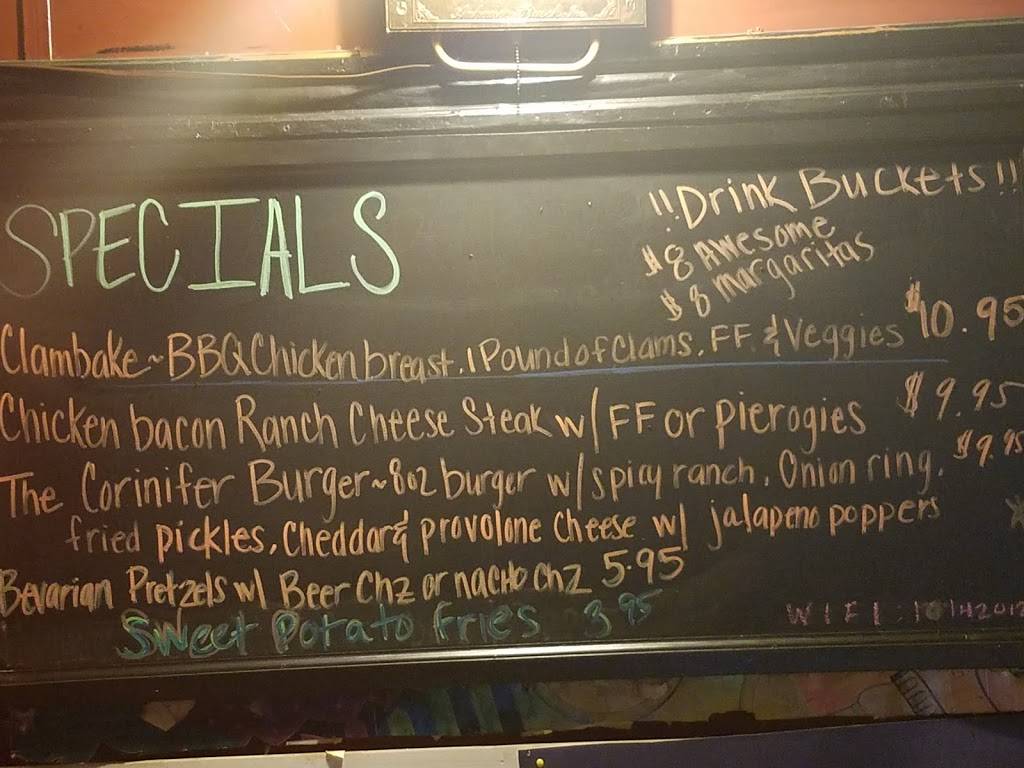 SPECIALS
!!Drink Buckets!!
$8 Awesome
$8 margaritas
Clambake~BBQ Chicken breast, 1 Pound of Clams, FF & Veggies $10.95
Chicken bacon Ranch Cheese Steak w/ FF or Pierogies $9.95
The Corinifer Burger~8oz burger w/ spicy ranch, Onion ring, $9.95
fried pickles, Cheddar & provolone Cheese w/ jalapeno poppers
Bevarian Pretzels w/ Beer Chz or nacho chz 5.95
Sweet Potato fries 3.95
WIFI: